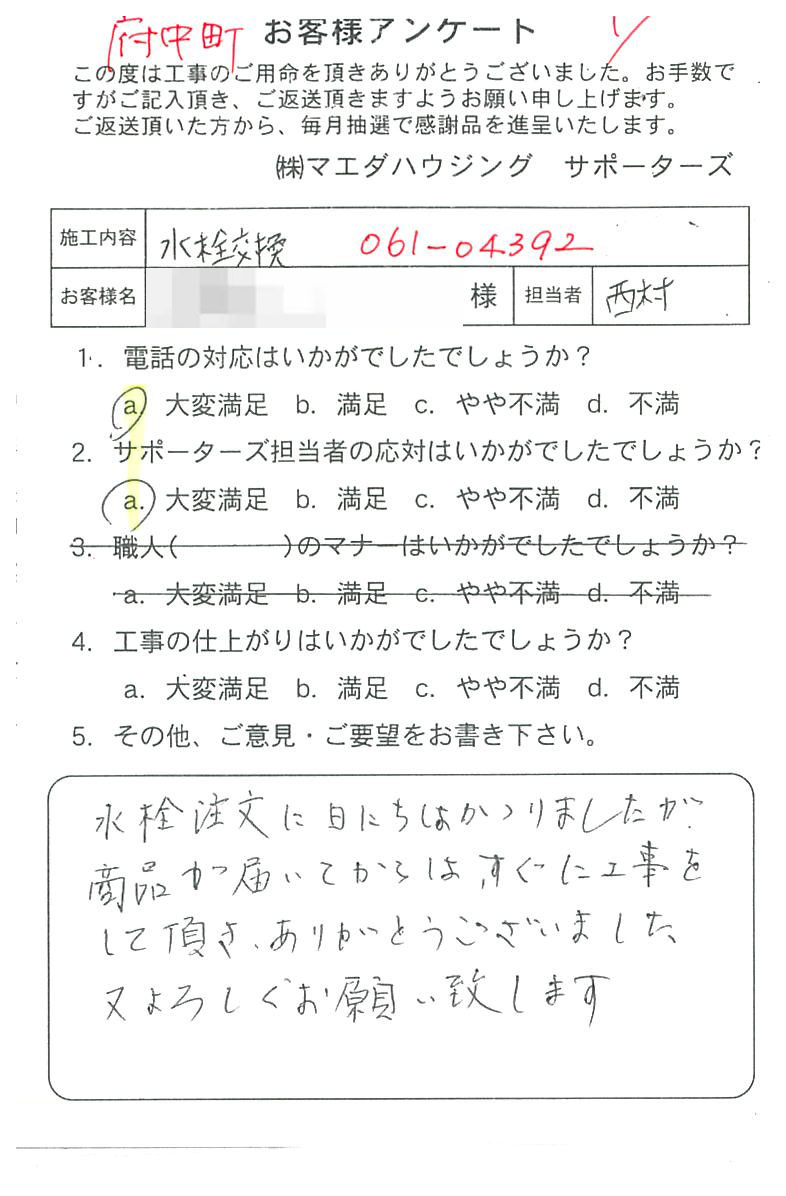 府中町 お客様アンケート
この度は工事のご用命を頂きありがとうございました。お手数で
すがご記入頂き、ご返送頂きますようお願い申し上げます。
ご返送頂いた方から、毎月抽選で感謝品を進呈いたします。
㈱マエダハウジング サポーターズ
施工内容 水栓交換 061-04392
お客様名 様 担当者 西村
1. 電話の対応はいかがでしたでしょうか？
a. 大変満足 b. 満足 c. やや不満 d. 不満
2. サポーターズ担当者の応対はいかがでしたでしょうか？
a. 大変満足 b. 満足 c. やや不満 d. 不満
3. 職人( )のマナーはいかがでしたでしょうか？
a. 大変満足 b. 満足 c. やや不満 d. 不満
4. 工事の仕上がりはいかがでしたでしょうか？
a. 大変満足 b. 満足 c. やや不満 d. 不満
5. その他、ご意見・ご要望をお書き下さい。
水栓注文に日にちはかゝりましたが、
商品が届いてからは、すぐに工事を
して頂き、ありがとうございました、
又よろしくお願い致します